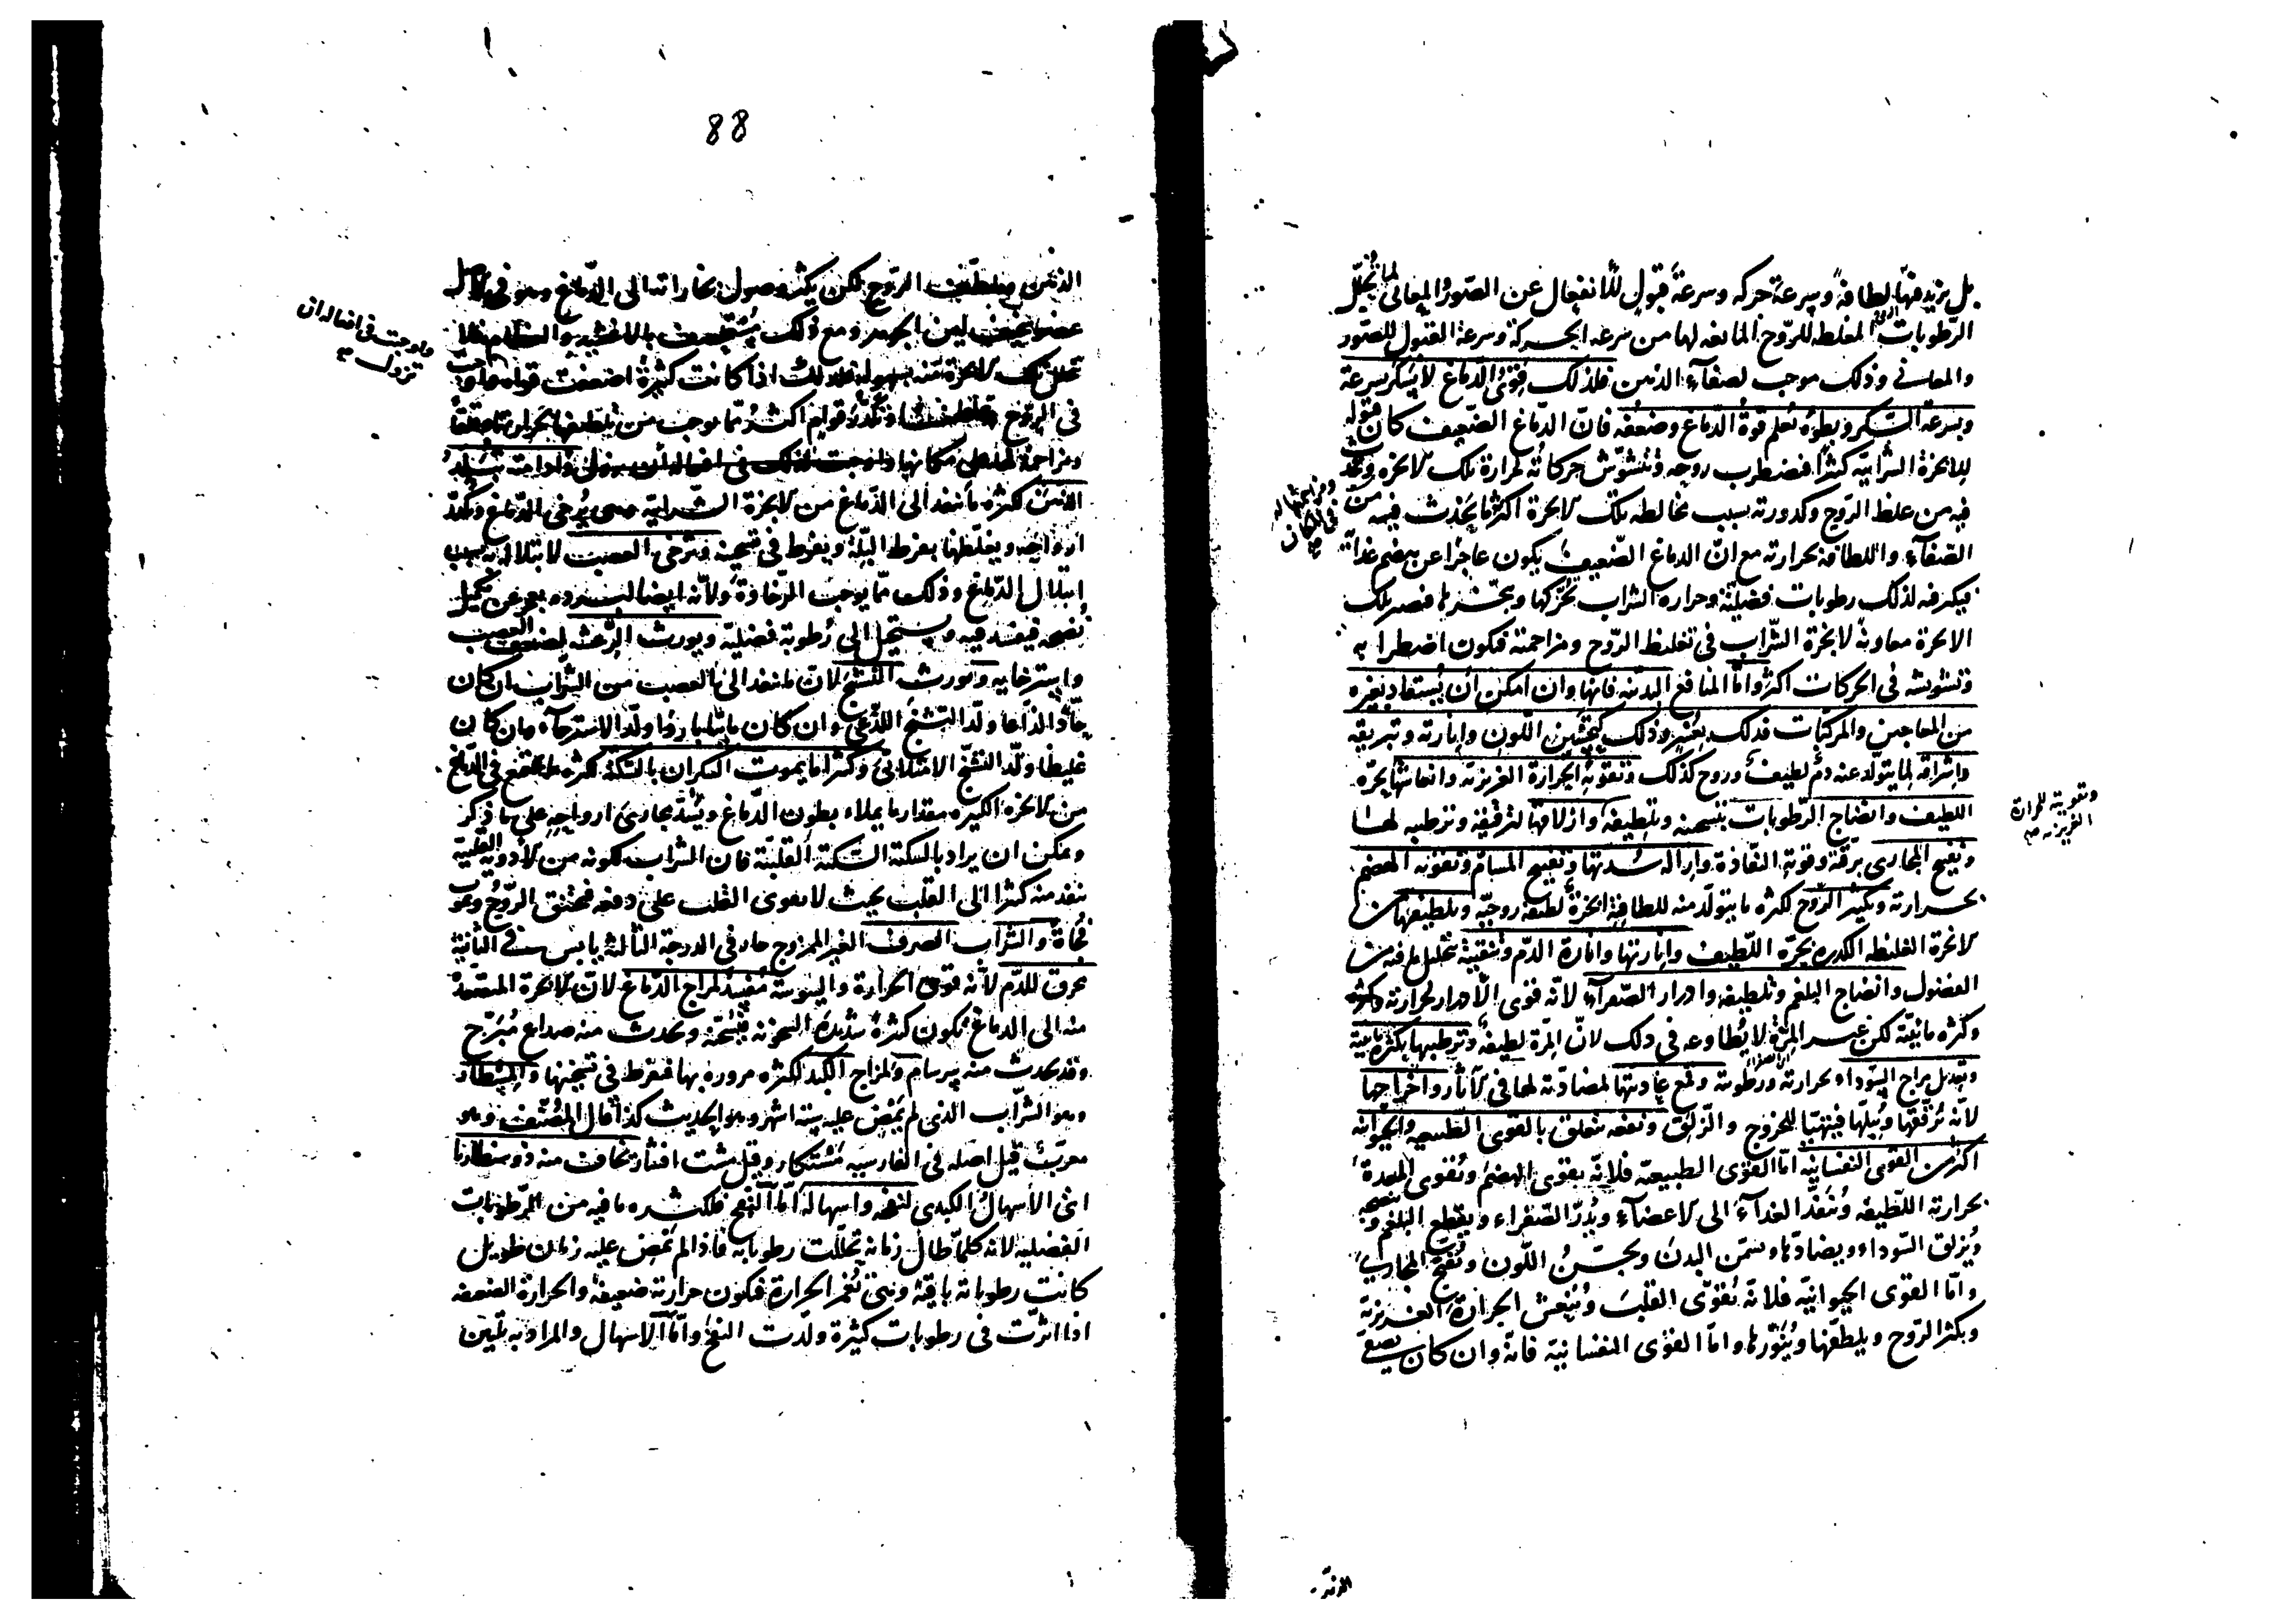 بل يزيد فيها لطافة وسرعة حركة وسرعة قبول للانفعال عن الصور والمعانى لما يحلل
الرطوبات المغلظه للروح المانعه لها من سرعه الحركة وسرعة القبول للصور
والمعانى وذلك موجب لصفاء الذهن فلذلك قوى الدماغ لا يسكر بسرعة
وبسرعة السكر وبطوئه تعلم قوة الدماغ وضعفه فان الدماغ الضعيف كان قبوله
للابخرة الشرابيه كثيرا فيضطرب روحه وتتشوش حركاته لحرارة تلك الابخره ويحدث
فيه من غلظ الروح وكدورته بسبب مخالطه تلك الابخرة اكثر ما يحدث فيه من
ومزاحمتها له فى المكان
الصفاء واللطافة بحرارته مع ان الدماغ الضعيف يكون عاجزا عن هضم غذائه
فيكثر فيه لذلك رطوبات فضلية وحرارة الشراب تحركها وتبخرها فتصير تلك
الابخرة معاونة لابخرة الشراب فى تغليظ الروح ومزاحمته فيكون اضطرابه
وتشوشه فى الحركات اكثر واما المنافع البدنيه فانها وان امكن ان يستفاد بغيره
من المعاجين والمركبات فذلك بعسر وذلك كتحسين اللون وانارته وتبريقه
واشراقه لما يتولد عنه دم لطيف وروح كذلك وتقوية الحرارة الغريزية وانعاشها بحره
اللطيف وانضاج الرطوبات بتسخينه وتلطيفه وازلاقها لترقيقه وترطيبه لها
وتقوية للحرارة
الغريزيه صح
وتفتيح المجارى برقته وقوته النفاذة وازاله سددتها وتفتيح المسام وتقويه الهضم
بحرارته وتكثير الروح لكثرة ما يتولد منه للطافة ابخرة لطيفة روحية وتلطيفها من
الابخرة الغليظه الكدره بحره اللطيف وانارتها وانارة الدم وتنقيته بتحليل ما فيه من
الفضول وانضاج البلغم وتلطيفه وادرار الصفراء لانه قوى الادرار لحرارته
وكثرة مائيته لكن غير المرة لا يطاوعه فى ذلك لان المرة لطيفة وترطيبها بكثرة مائيته
وتعديل مزاج السوداء بحرارته ورطوبته ودفع عاديتها لمضادته لها فى الآثار واخراجها
لانه يرققها ويبلها فيتهيأ للخروج والزلق ونفعه متعلق بالقوى الطبيعيه والحيوانيه
اكثر من القوى النفسانيه اما القوى الطبيعية فلانه يقوى الهضم ويقوى المعدة
بحرارته اللطيفه وينفذ الغذاء الى الاعضاء ويدر الصفراء ويقطع البلغم وينضجه
ويزلق السوداء ويضادها ويسمن البدن ويحسن اللون ويفتح المجارى
واما القوى الحيوانية فلانه يقوى القلب وينعش الحرارة الغريزية
ويكثر الروح ويلطفها وينورها واما القوى النفسانية فانه وان كان يصفى
88
الذهن ويلطف الروح لكن يكثر وصول بخاراته الى الدماغ وهو فى الاصل
عضو ضعيف لين الجوهر ومع ذلك
تلك الابخرة عنه بسهولة اذا كانت كثيرة اضعفت قواه
واوجبت فى افعاله ان
تزول صح
فى الروح وتكدر قوامه اكثر مما يوجب من تلطيفها بحرارتها
ومزاحمة لها على مكانها وادامته تبلد
الذهن لكثرة ما ينفذ الى الدماغ من الابخرة الشرابيه وهى يرخى الدماغ ويكدر
ارواحه ويغلظها بفرط البلة ويفرط فى تسخينه وترخى العصب لابتلاله بسبب
ابتلال الدماغ وذلك مما يوجب الرخاوة ولانه ايضا لبرده يعجز عن تكميل
نضجه فيفسد فيه ويستحيل الى رطوبة فضلية ويورث الرعشه لضعف العصب
واسترخائه ويورث التشنج لان ما ينفذ الى العصب من الشراب ان كان
حادا لذاعا ولد التشنج اللذعى وان كان مائيا باردا ولد الاسترخاء وان كان
غليظا ولد التشنج الامتلائى وكثيرا ما يموت السكران بالسكتة لكثرة ما يجتمع فى الدماغ
من الابخره الكثيره مقدار ما يملاء بطون الدماغ ويسد مجارى ارواحه على ما ذكر
ويمكن ان يراد بالسكتة السكتة القلبية فان الشراب لكونه من الادوية القلبية
ينفذ منه كثيرا الى القلب بحيث لا يقوى القلب على دفعه فيختنق الروح ويموت
فجأة والشراب الصرف الغير الممزوج حار فى الدرجة الثالثة يابس فى الثانية
محرق للدم لانه قوى الحرارة واليبوسة مفسد لمزاج الدماغ لان الابخرة المتصعدة
منه الى الدماغ يكون كثيرة شديدة السخونه فيسخنه ويحدث منه صداع مبرح
وقد يحدث منه سرسام ولمزاج الكبد لكثرة مروره بها فيفرط فى تسخينها والمسطار
وهو الشراب الذى لم يمض عليه ستة اشهر وهو الحديث كذا قال المصنف وهو
معرب قيل اصله فى الفارسيه مستكار وقيل مشت افشار يخاف منه ذوسنطاريا
اى الاسهال الكبدى لنفخه واسهاله اما النفخ فلكثرة ما فيه من الرطوبات
الفضليه لانه كلما طال زمانه تحللت رطوباته فاذا لم يمض عليه زمان طويل
كانت رطوباته باقية وهى تغمر الحرارة فيكون حرارته ضعيفة والحرارة الضعيفه
اذا اثرت فى رطوبات كثيرة ولدت النفخ واما الاسهال والمراد به تليين